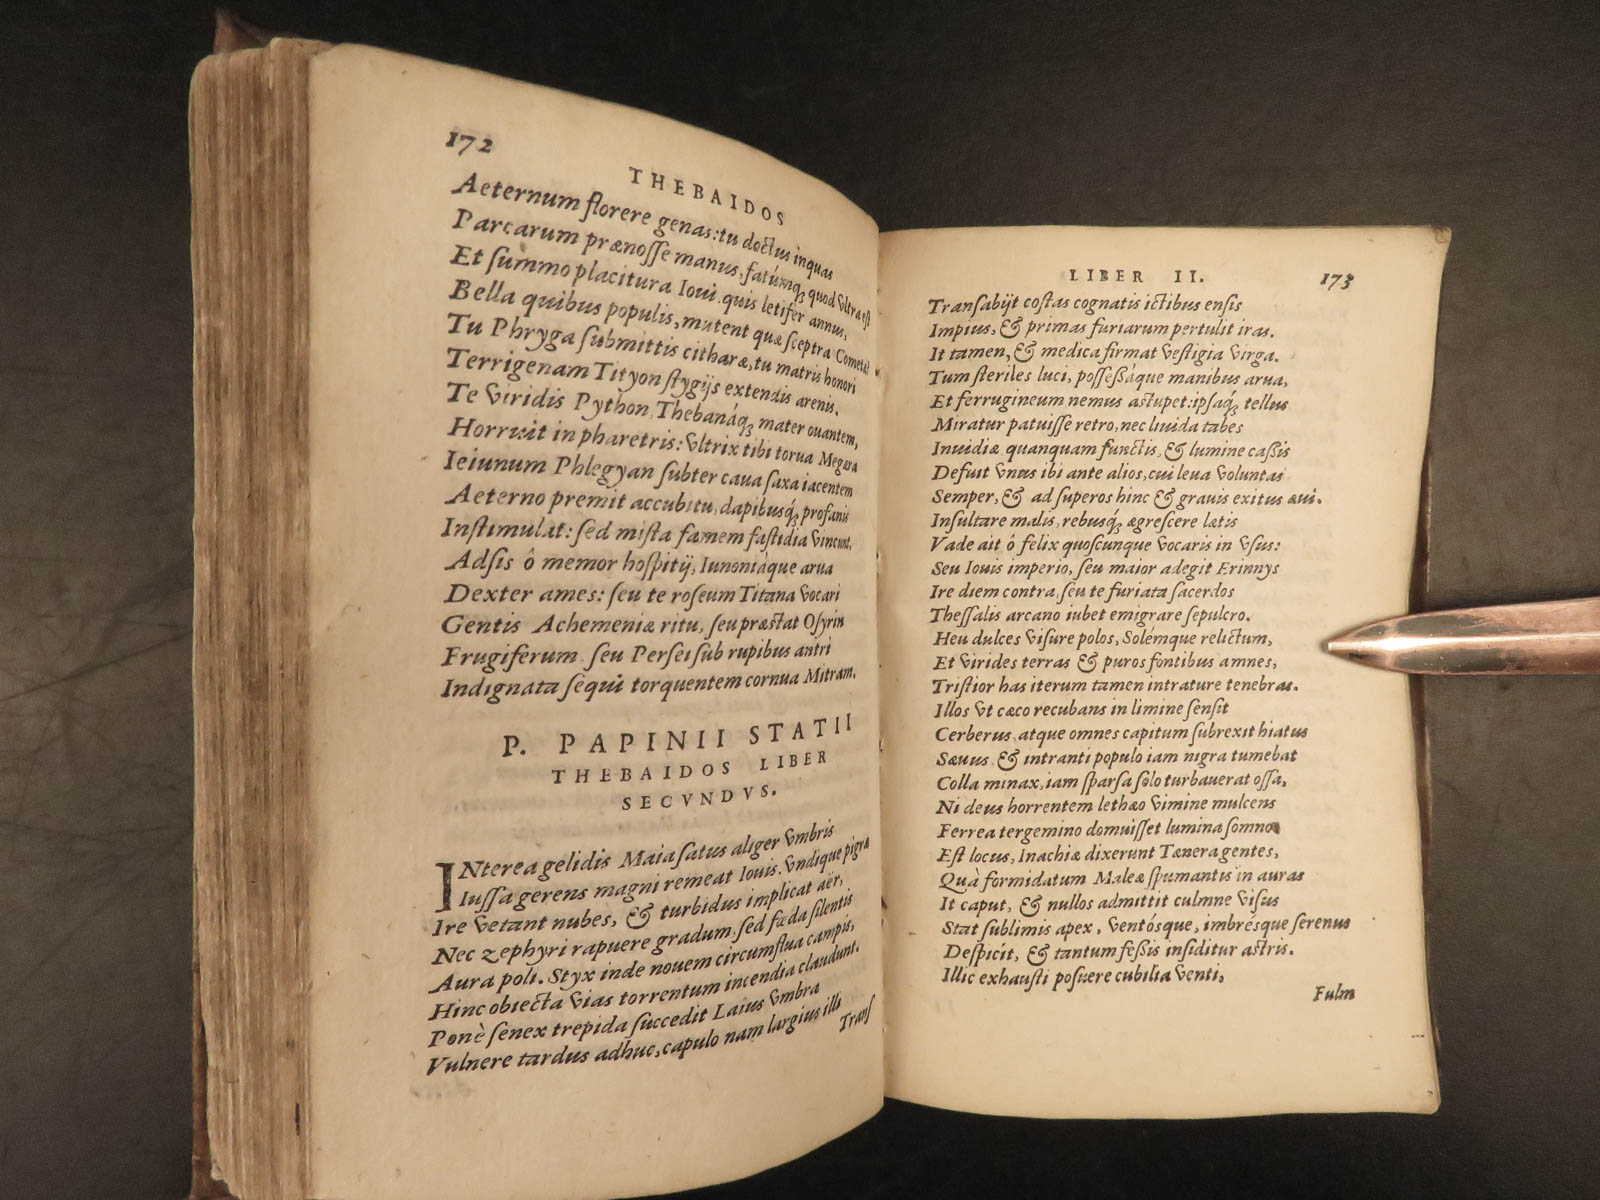 172
THEBAIDOS
Aeternum florere genas: tu doctus iniquas
Parcarum prænosse manus, fatúmq́; quod vltra est
Et summo placitura Ioui, quis letifer annus,
Bella quibus populis, mutent quæ sceptra Cometæ
Tu Phryga submittis citharæ, tu matris honori
Terrigenam Tityon stygijs extendis arenis.
Te viridis Python, Thebanáq́; mater ouantem,
Horruit in pharetris: vltrix tibi torua Megæra
Ieiunum Phlegyan subter caua saxa iacentem
Aeterno premit accubitu, dapibusq́; profanis
Instimulat: sed mista famem fastidia vincunt.
Adsis ô memor hospitij, Iunoniáque arua
Dexter ames: seu te roseum Titana vocari
Gentis Achemeniæ ritu, seu præstat Osyrin
Frugiferum, seu Persei sub rupibus antri
Indignata sequi torquentem cornua Mitram.
P. PAPINII STATII
THEBAIDOS LIBER
SECVNDVS.
INterea gelidis Maia satus aliger vmbris
Iussa gerens magni remeat Iouis. vndique pigra
Ire vetant nubes, & turbidus implicat aër,
Nec zephyri rapuere gradum, sed fœda silentis
Aura poli. Styx inde nouem circumflua campis,
Hinc obiecta vias torrentum incendia claudunt.
Ponè senex trepida succedit Laius vmbra
Vulnere tardus adhuc, capulo nam largius illi
Trans
LIBER II.
173
Transabijt costas cognatis ictibus ensis
Impius, & primas furiarum pertulit iras.
It tamen, & medica firmat vestigia virga.
Tum steriles luci, possessáque manibus arua,
Et ferrugineum nemus astupet: ipsáq́; tellus
Miratur patuisse retro, nec liuida tabes
Inuidiæ quanquam functis, & lumine cassis
Defuit vnus ibi ante alios, cui leua voluntas
Semper, & ad superos hinc & grauis exitus æui.
Insultare malis, rebusq́; ægrescere lætis
Vade ait ô felix quoscunque vocaris in vsus:
Seu Iouis imperio, seu maior adegit Erinnys
Ire diem contra, seu te furiata sacerdos
Thessalis arcano iubet emigrare sepulcro.
Heu dulces visure polos, Solémque relictum,
Et virides terras & puros fontibus amnes,
Tristior has iterum tamen intrature tenebras.
Illos vt cæco recubans in limine sensit
Cerberus, atque omnes capitum subrexit hiatus
Sæuus & intranti populo iam nigra tumebat
Colla minax, iam sparsa solo turbauerat ossa,
Ni deus horrentem lethæo vimine mulcens
Ferrea tergemino domuisset lumina somno
Est locus, Inachiæ dixerunt Tænera gentes,
Quà formidatum Maleæ spumantis in auras
It caput, & nullos admittit culmne visus
Stat sublimis apex, ventósque, imbrésque serenus
Despicit, & tantum fessis insiditur astris.
Illic exhausti posuere cubilia venti,
Fulm